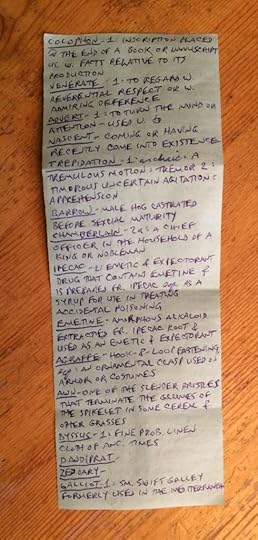 COLOPHON - 1: INSCRIPTION PLACED
@ THE END OF A BOOK OR MANUSCRIPT
US. W. FACTS RELATIVE TO ITS
PRODUCTION
VENERATE - 1: TO REGARD W.
REVERENTIAL RESPECT OR W.
ADMIRING DEFERENCE
ADVERT - 1: TO TURN THE MIND OR
ATTENTION - USED W. to
NASCENT - COMING OR HAVING
RECENTLY COME INTO EXISTENCE
TREPIDATION - 1: archaic: A
TREMULOUS MOTION: TREMOR 2:
TIMOROUS UNCERTAIN AGITATION:
APPREHENSION
BARROW - MALE HOG CASTRATED
BEFORE SEXUAL MATURITY
CHAMBERLAIN - 2a: A CHIEF
OFFICER IN THE HOUSEHOLD OF A
KING OR NOBLEMAN
IPECAC - 2: EMETIC & EXPECTORANT
DRUG THAT CONTAINS EMETINE &
IS PREPARED FR. IPECAC esp. AS A
SYRUP FOR USE IN TREATING
ACCIDENTAL POISONING
EMETINE - AMORPHOUS ALKALOID
EXTRACTED FR. IPECAC ROOT &
USED AS AN EMETIC & EXPECTORANT
AGRAFFE - HOOK-&-LOOP FASTENING,
esp: AN ORNAMENTAL CLASP USED ON
ARMOR OR COSTUMES
AWN - ONE OF THE SLENDER BRISTLES
THAT TERMINATE THE GLUMES OF
THE SPIKELET IN SOME CEREAL &
OTHER GRASSES
BYSSUS - 1: FINE PROB. LINEN
CLOTH OF ANC. TIMES
DANDIPRAT -
ZEDOARY -
GALLIOT - 1: SM. SWIFT GALLEY
FORMERLY USED IN THE MEDITERRANEAN